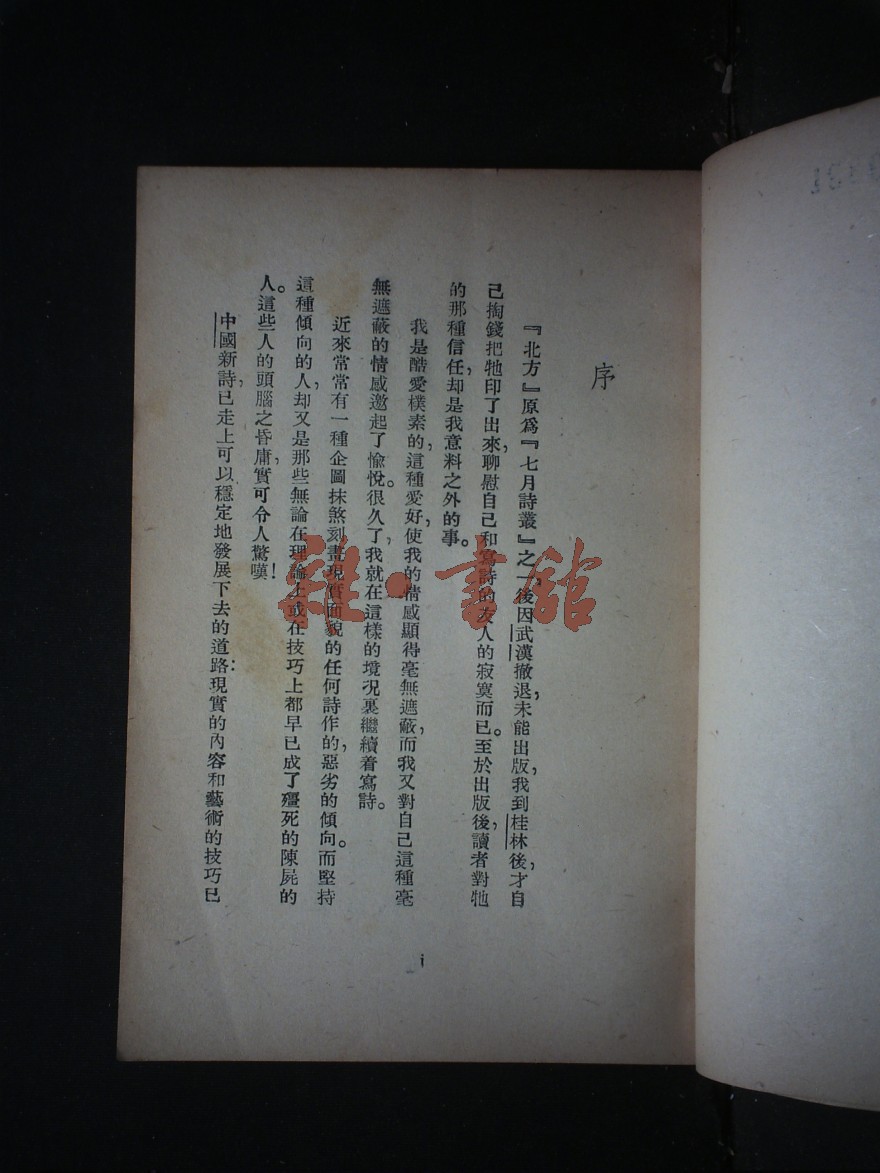 序
『北方』原爲『七月詩叢』之一,後因武漢撤退,未能出版,我到桂林後,才自
己掏錢把牠印了出來,聊慰自己和寫詩的友人的寂寞而已。至於出版後,讀者對牠
的那種信任,却是我意料之外的事。
我是酷愛樸素的,這種愛好,使我的情感顯得毫無遮蔽,而我又對自己這種毫
無遮蔽的情感邀起了愉悅。很久了,我就在這樣的境况裏繼續着寫詩。
近來常常有一種企圖抹煞刻畫現實面貌的任何詩作的,惡劣的傾向。而堅持
這種傾向的人,却又是那些無論在理論上或在技巧上都早已成了殭死的陳屍的
人。這些人的頭腦之昏庸,實可令人驚嘆!
中國新詩,已走上可以穩定地發展下去的道路:現實的內容和藝術的技巧已
i
雜·書館